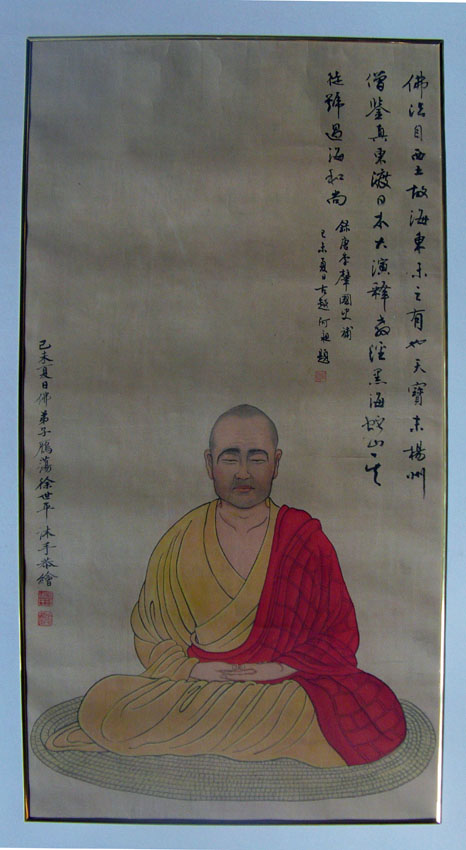 佛法自西土故海東未之有也天寶末楊州
僧鑒真東渡日本大演釋教經黑海蛇山其
徒號過海和尚
錄唐李肇國史補
己未夏日古越題
己未夏日佛弟子鴈蕩徐世平沐手恭繪